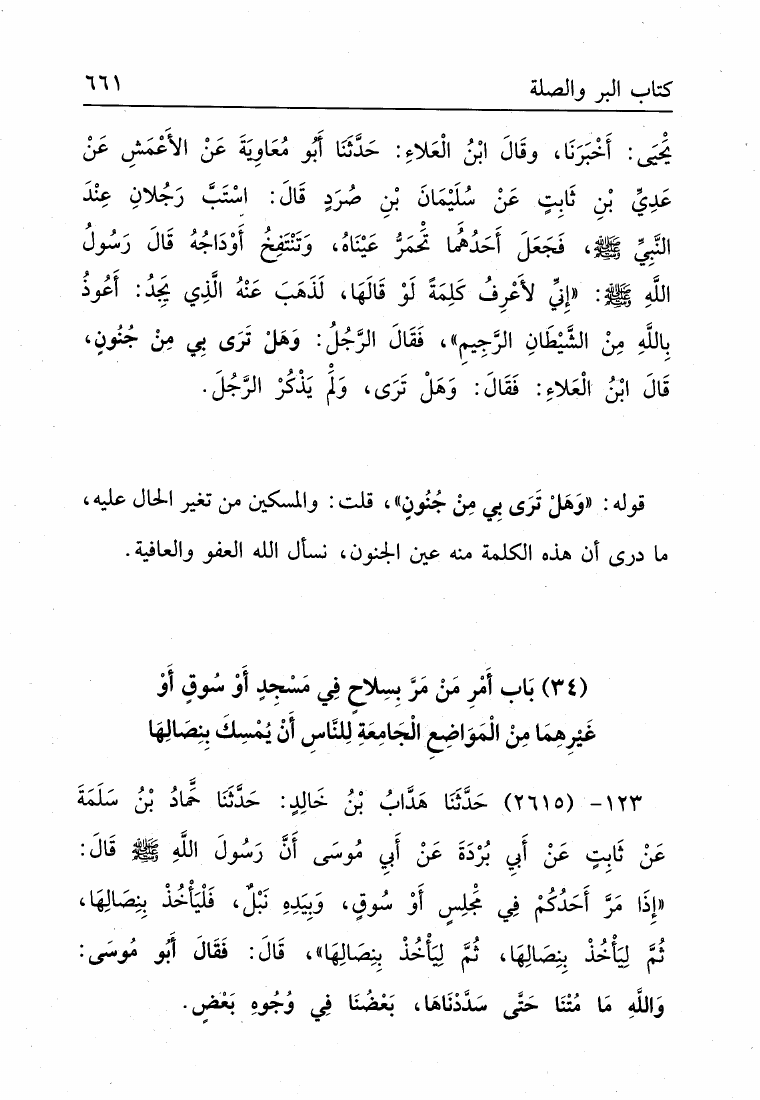 كتاب البر والصلة ٦٦١
يَحْيَى: أَخْبَرَنَا، وقَالَ ابْنُ الْعَلاءِ: حَدَّثَنَا أَبُو مُعَاوِيَةَ عَنْ الأَعْمَشِ عَنْ
عَدِيِّ بْنِ ثَابِتٍ عَنْ سُلَيْمَانَ بْنِ صُرَدٍ قَالَ: اسْتَبَّ رَجُلانِ عِنْدَ
النَّبِيِّ ﷺ، فَجَعَلَ أَحَدُهُمَا تَحْمَرُّ عَيْنَاهُ، وَتَنْتَفِخُ أَوْدَاجُهُ قَالَ رَسُولُ
اللَّهِ ﷺ: «إِنِّي لأَعْرِفُ كَلِمَةً لَوْ قَالَهَا، لَذَهَبَ عَنْهُ الَّذِي يَجِدُ: أَعُوذُ
بِاللَّهِ مِنْ الشَّيْطَانِ الرَّجِيمِ»، فَقَالَ الرَّجُلُ: وَهَلْ تَرَى بِي مِنْ جُنُونٍ،
قَالَ ابْنُ الْعَلاءِ: فَقَالَ: وَهَلْ تَرَى، وَلَمْ يَذْكُرْ الرَّجُلَ.
قوله: «وَهَلْ تَرَى بِي مِنْ جُنُونٍ»، قلت: والمسكين من تغير الحال عليه،
ما درى أن هذه الكلمة منه عين الجنون، نسأل الله العفو والعافية.
(٣٤) بَاب أَمْرِ مَنْ مَرَّ بِسِلاحٍ فِي مَسْجِدٍ أَوْ سُوقٍ أَوْ
غَيْرِهِمَا مِنْ الْمَوَاضِعِ الْجَامِعَةِ لِلنَّاسِ أَنْ يُمْسِكَ بِنِصَالِهَا
١٢٣- (٢٦١٥) حَدَّثَنَا هَدَّابُ بْنُ خَالِدٍ: حَدَّثَنَا حَمَّادُ بْنُ سَلَمَةَ
عَنْ ثَابِتٍ عَنْ أَبِي بُرْدَةَ عَنْ أَبِي مُوسَى أَنَّ رَسُولَ اللَّهِ ﷺ قَالَ:
«إِذَا مَرَّ أَحَدُكُمْ فِي مَجْلِسٍ أَوْ سُوقٍ، وَبِيَدِهِ نَبْلٌ، فَلْيَأْخُذْ بِنِصَالِهَا،
ثُمَّ لِيَأْخُذْ بِنِصَالِهَا، ثُمَّ لِيَأْخُذْ بِنِصَالِهَا»، قَالَ: فَقَالَ أَبُو مُوسَى:
وَاللَّهِ مَا مُتْنَا حَتَّى سَدَّدْنَاهَا، بَعْضُنَا فِي وُجُوهِ بَعْضٍ.